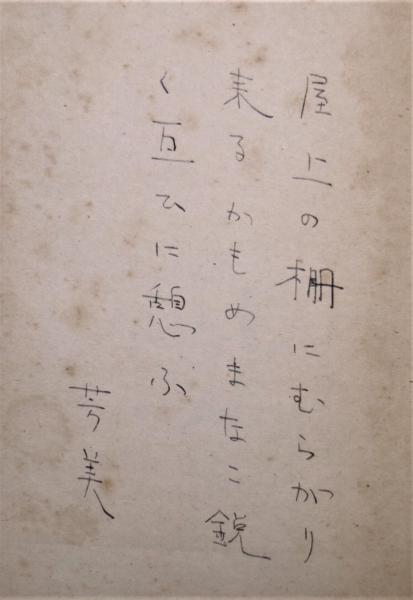 屋上の柵にむらがり
来るかもめまなこ鋭
く互ひに憩ふ
芳美